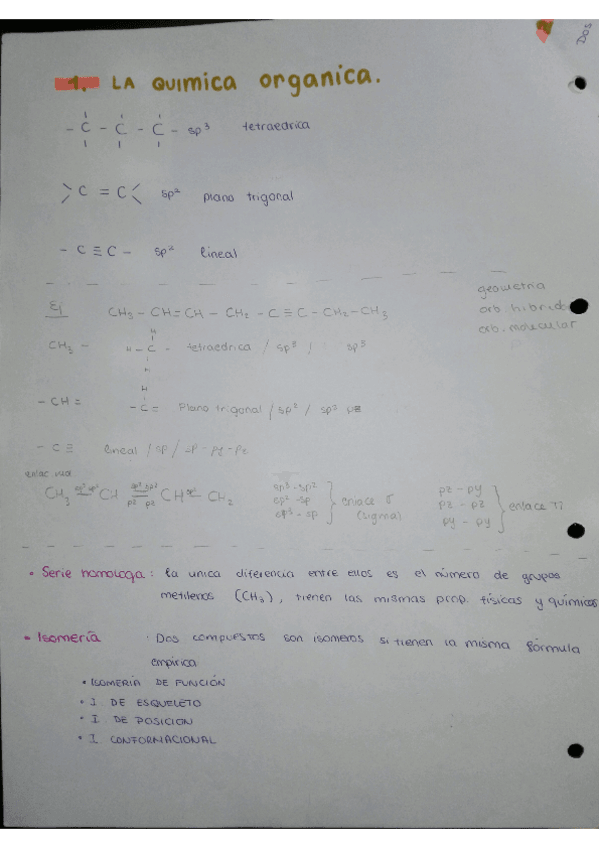 Dos
1. LA QUIMICA organica.
- C - C - C - sp³ tetraedrica
C = C sp² plano trigonal
- C ≡ C - sp² lineal
geometria
orb. hibrido
orb. molecular
Ej CH₃ - CH = CH - CH₂ - C ≡ C - CH₂ - CH₃
CH₃ - H - C - tetraedrica / sp³ / sp³
H
- CH = - C = Plano trigonal / sp² / sp² pz
- C ≡ lineal / sp / sp - py - pz
CH₃ CH CH CH₂
sp³ - sp²
sp² - sp
sp³ - sp
enlace σ
(sigma)
pz - py
pz - pz
py - py
enlace π
• Serie homologa: la unica diferencia entre ellos es el número de grupos
metilenos (CH₃), tienen las mismas prop. físicas y químicas
• Isomería : Dos compuestos son isomeros si tienen la misma fórmula
empírica
• ISOMERÍA DE FUNCIÓN
• I DE ESQUELETO
• I DE POSICION
• I CONFORMACIONAL